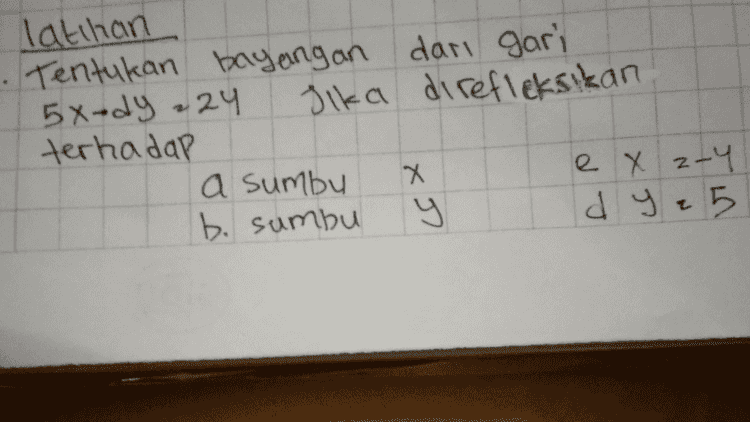 latihan
. Tentukan bayangan dari gari
5x-dy = 24 Jika direfleksikan
terhadap
a sumbu x e x = -4
b. sumbu y d y = 5